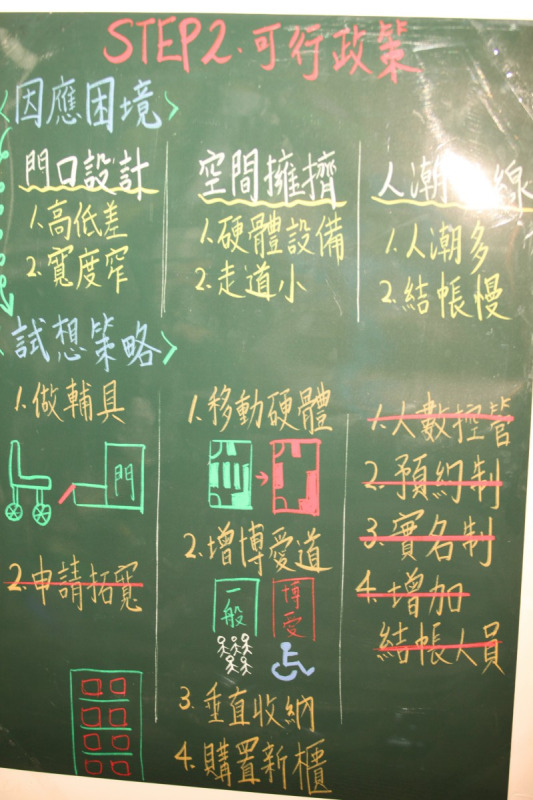 STEP2.可行政策
<因應困境>
門口設計
1.高低差
2.寬度窄
空間擁擠
1.硬體設備
2.走道小
人潮線
1.人潮多
2.結帳慢
<試想策略>
1.做輔具
門
2.申請拓寬
1.移動硬體
2.增博愛道
一般
博愛
3.垂直收納
4.購置新櫃
1.人數控管
2.預約制
3.實名制
4.增加
結帳人員